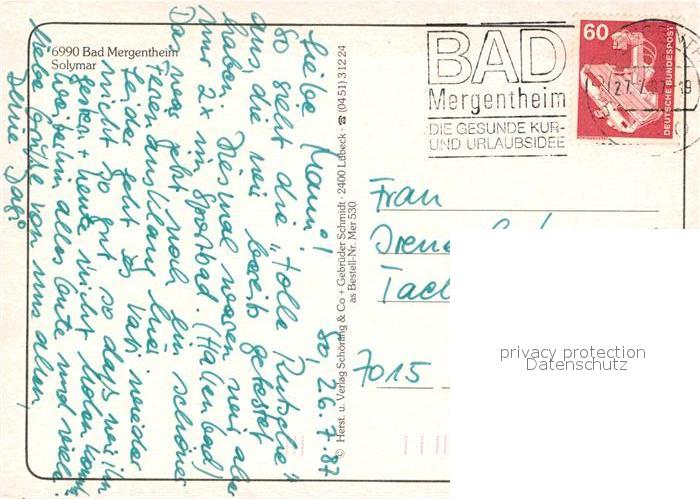 6990 Bad Mergentheim
Solymar
So, 26.7.87
Liebe Mami!
So sieht die „tolle Rutsche"
aus, die wir bereits getestet
haben. Diesmal waren wir aber
nur 2x im Sportbad. (Hallenbad)
Das war jetzt noch ein schöner
Ferienausklang hier.
Leider geht es Vati wieder
nicht so gut, so daß wir ihn
gestern + heute nicht holen konnten.
Weiterhin alles Gute und viele
liebe Grüße von uns allen,
Deine
© Herst. u. Verlag Schöning & Co + Gebrüder Schmidt · 2400 Lübeck · ☎ (04 51) 3 12 24
as Bestell-Nr. Mer 530
BAD
Mergentheim
DIE GESUNDE KUR-
UND URLAUBSIDEE
60
DEUTSCHE BUNDESPOST
Frau
Irene
7015
privacy protection
Datenschutz